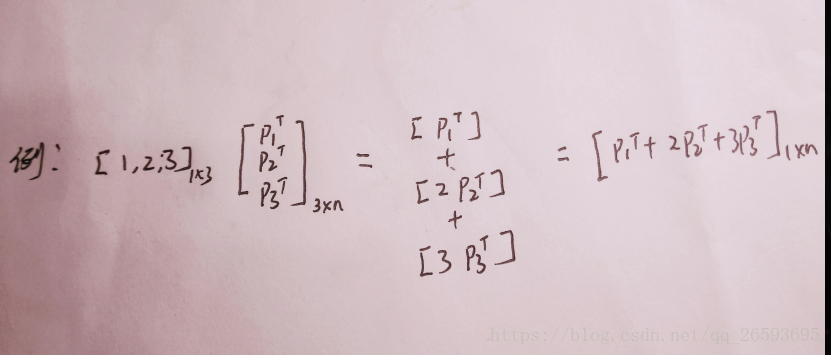 例: [1,2,3]₁ₓ₃ [P₁ᵀ P₂ᵀ P₃ᵀ]₃ₓₙ = [P₁ᵀ] + [2 P₂ᵀ] + [3 P₃ᵀ] = [P₁ᵀ + 2P₂ᵀ + 3P₃ᵀ]₁ₓₙ
https://blog.csdn.net/qq_26593695